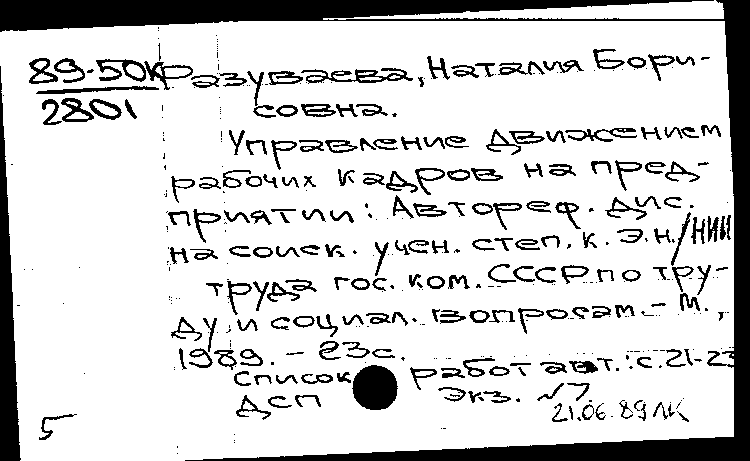 89-50К Разуваева, Наталия Бори-
2801 совна.
Управление движением
рабочих кадров на пред-
приятии: Автореф. дис.
на соиск. учен. степ. к. э. н. / НИИ
труда гос. ком. СССР по тру-
ду и социал. вопросам. - М.,
1989. - 23с.
Список работ авт.: с. 21-23
ДСП Экз. №7
21.06.89 ЛК
5